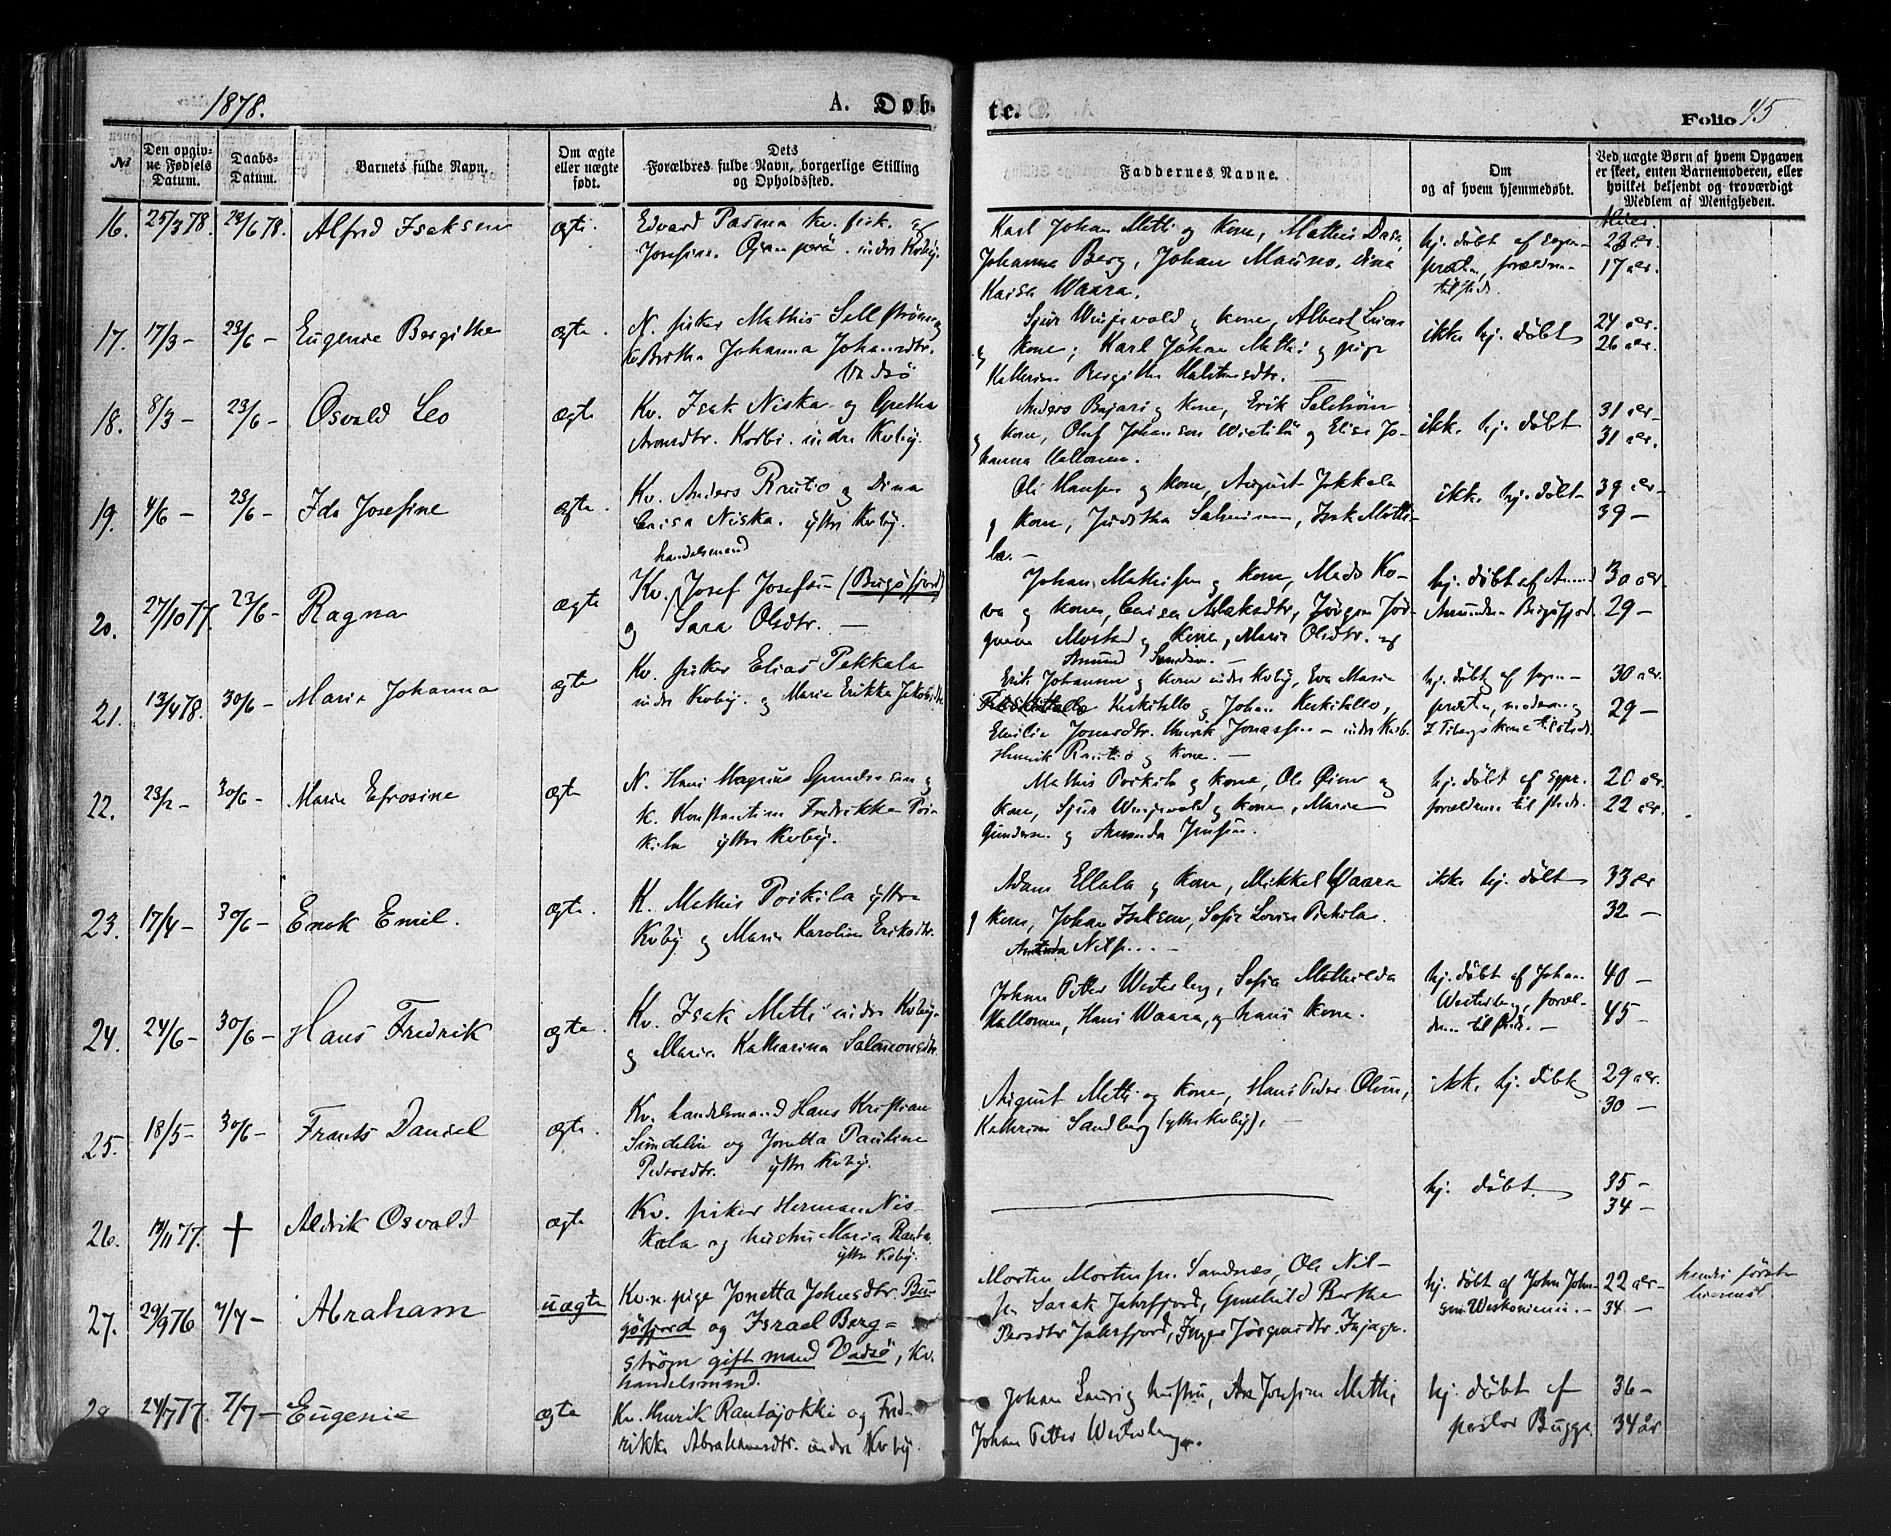 1878.
A. Døb-
te.
Folio 45
№
Den opgiv-
ne Fødsels
Datum.
Daabs-
Datum.
Barnets fulde Navn.
Om ægte
eller uægte
født.
Dets
Forældres fulde Navn, borgerlige Stilling
og Opholdssted.
Faddernes Navne.
Om
og af hvem hjemmedøbt.
Ved uægte Børn af hvem Opgaven
er skeet, enten Barnemoderen, eller
hvilket bekjendt og troværdigt
Medlem af Menigheden.
16. 25/3 78. Alfred Isaksen ægte.
Josefine indre Kvbÿ.
Karl Johan Metti og Kone, Mathis
Johanna Berg, Johan
Kaisa Waara.
hj. døbt af
tilstede.
23 aar.
17 aar.
17. 17/3 – 23/6 – Eugenie Bergithe ægte.
N. fisker Mathis Sellstrøm og
Kv Bertha Johanna Johansdtr.
Vadsö
og Kone, Albert
og Kone; Karl Johan Metti og pige
Kathrine Bergithe
ikke hj. døbt
24 aar.
26 aar.
18. 8/3 – 23/6 – Osvald Leo ægte
Kv. Isak Niska og Gretha
Aronsdtr. Korbi. indre Kvbÿ.
Anders Bajari og Kone, Erik
og Kone, Oluf Johansen og Elisa Jo-
hanna
ikke hj. døbt
31 aar.
31 aar.
19. 4/6 – 23/6 – Ida Josefine ægte.
Kv. Anders Rautio og Dina
Caisa Niska. ÿttre Kvbÿ.
Ole Hansen og Kone, August Jokkala
og Kone, Juditha Isak Matti-
la. –
ikke hj. døbt
39 aar.
39 –
20. 27/10 77. 23/6 – Ragna ægte
handelsmand
Kv. Josef Josefsen (Bugöfjord)
og Sara Olsdtr. –
Johan Mathisen og Kone, Mads Ko-
va og Kone, Caisa Aslaksdtr, Jørgen Jør-
gensen og Kone, Maria Olsdtr. af
Amund
hj. døbt af Amund
Amundsen Bugöfjord.
30 aar
29 –
21. 13/4 78. 30/6 – Marie Johanna ægte
Kv. fisker Elias Pekkala
indre Kvbÿ. og Marie Erikke
Erik Johansen og Kone indre Kvbÿ, Eva Maria
Keskitallo og Johan Keskitallo,
Emilie Jonasdtr. Henrik Jonassen – indre Kvb.
Henrik Rautiö og Kone. –
hj. døbt af sogne-
presten, moderen og
Kone tilstede.
30 aar.
29 –
22. 23/2 – 30/6 – Marie Efrosine ægte
N. Hans Magnus Gundersen og
k. Konstantine Fredrikke Poi-
kila ÿttre Kvbÿ.
Mathis Poikila og Kone, Ole og
Kone, og Kone, Maren
Gundersen og Amanda Jensen.
hj. døbt af
forældrene tilstede.
20 aar.
22 aar.
23. 17/4 – 30/6 – Enok Emil. ægte.
K. Mathis Poikila ÿttre
Kvbÿ og Maria Karolina Eriksdtr.
Adam Ellala og Kone, Mikkel Waara
og Kone, Johan Isaksen, Sofie Lovise Poikila.
Amanda Nilsen. –
ikke hj. døbt
33 aar
32 –
24. 24/6 – 30/6 – Hans Fredrik ægte.
Kv. Isak Metti indre Kvbÿ.
og Maria Katharina Salomonsdtr.
Johan Petter Westerberg, Sofia Mathilda
Kallonen, Hans Waara, og hans Kone.
hj. døbt af Johan
Westerberg, foræl-
drene tilstede. –
40 –
45 –
25. 18/5 – 30/6 – Frants Daniel ægte.
Kv. handelsmand Hans Kristian
Sundelin og Jonetta Pauline
Pedersdtr. ÿttre Kvbÿ.
August Metti og Kone, Hans Peder Olsen,
Kathrine Sandberg (ÿttre Kvbÿ). –
ikke hj. døbt
29 aar.
30 –
26. 77. † Aldrik Osvald ægte
Kv. fisker Herman Nis-
kala og hustru Maria Ranta.
ÿttre Kvbÿ.
hj. døbt.
35 –
34 –
27. 29/9 76 7/7 – Abraham uægte
Kv. n. pige Jonetta Johnsdtr. Bu-
göfjord og Israel Berg-
strøm gift mand Vadsö, Kv.
handelsmand.
Morten Mortensen Sandnæs, Ole Nil-
sen Sarak Jahrfjord, Gunhild Berthe
Persdtr Jahrfjord, Inger Jörgensdtr.
hj. døbt af John John-
sen
22 aar
34 –
hendes første
28. 24/7 77. 7/7 – Eugenie ægte
Kv. Henrik Rantajokki og Fred-
rikke Abrahamsdtr. indre Kvbÿ.
Johan Lauvig hustru, Ane Josefine Metti,
Johan Petter Westerberg.
hj. døbt af
pastor Bugge.
36 –
34 år